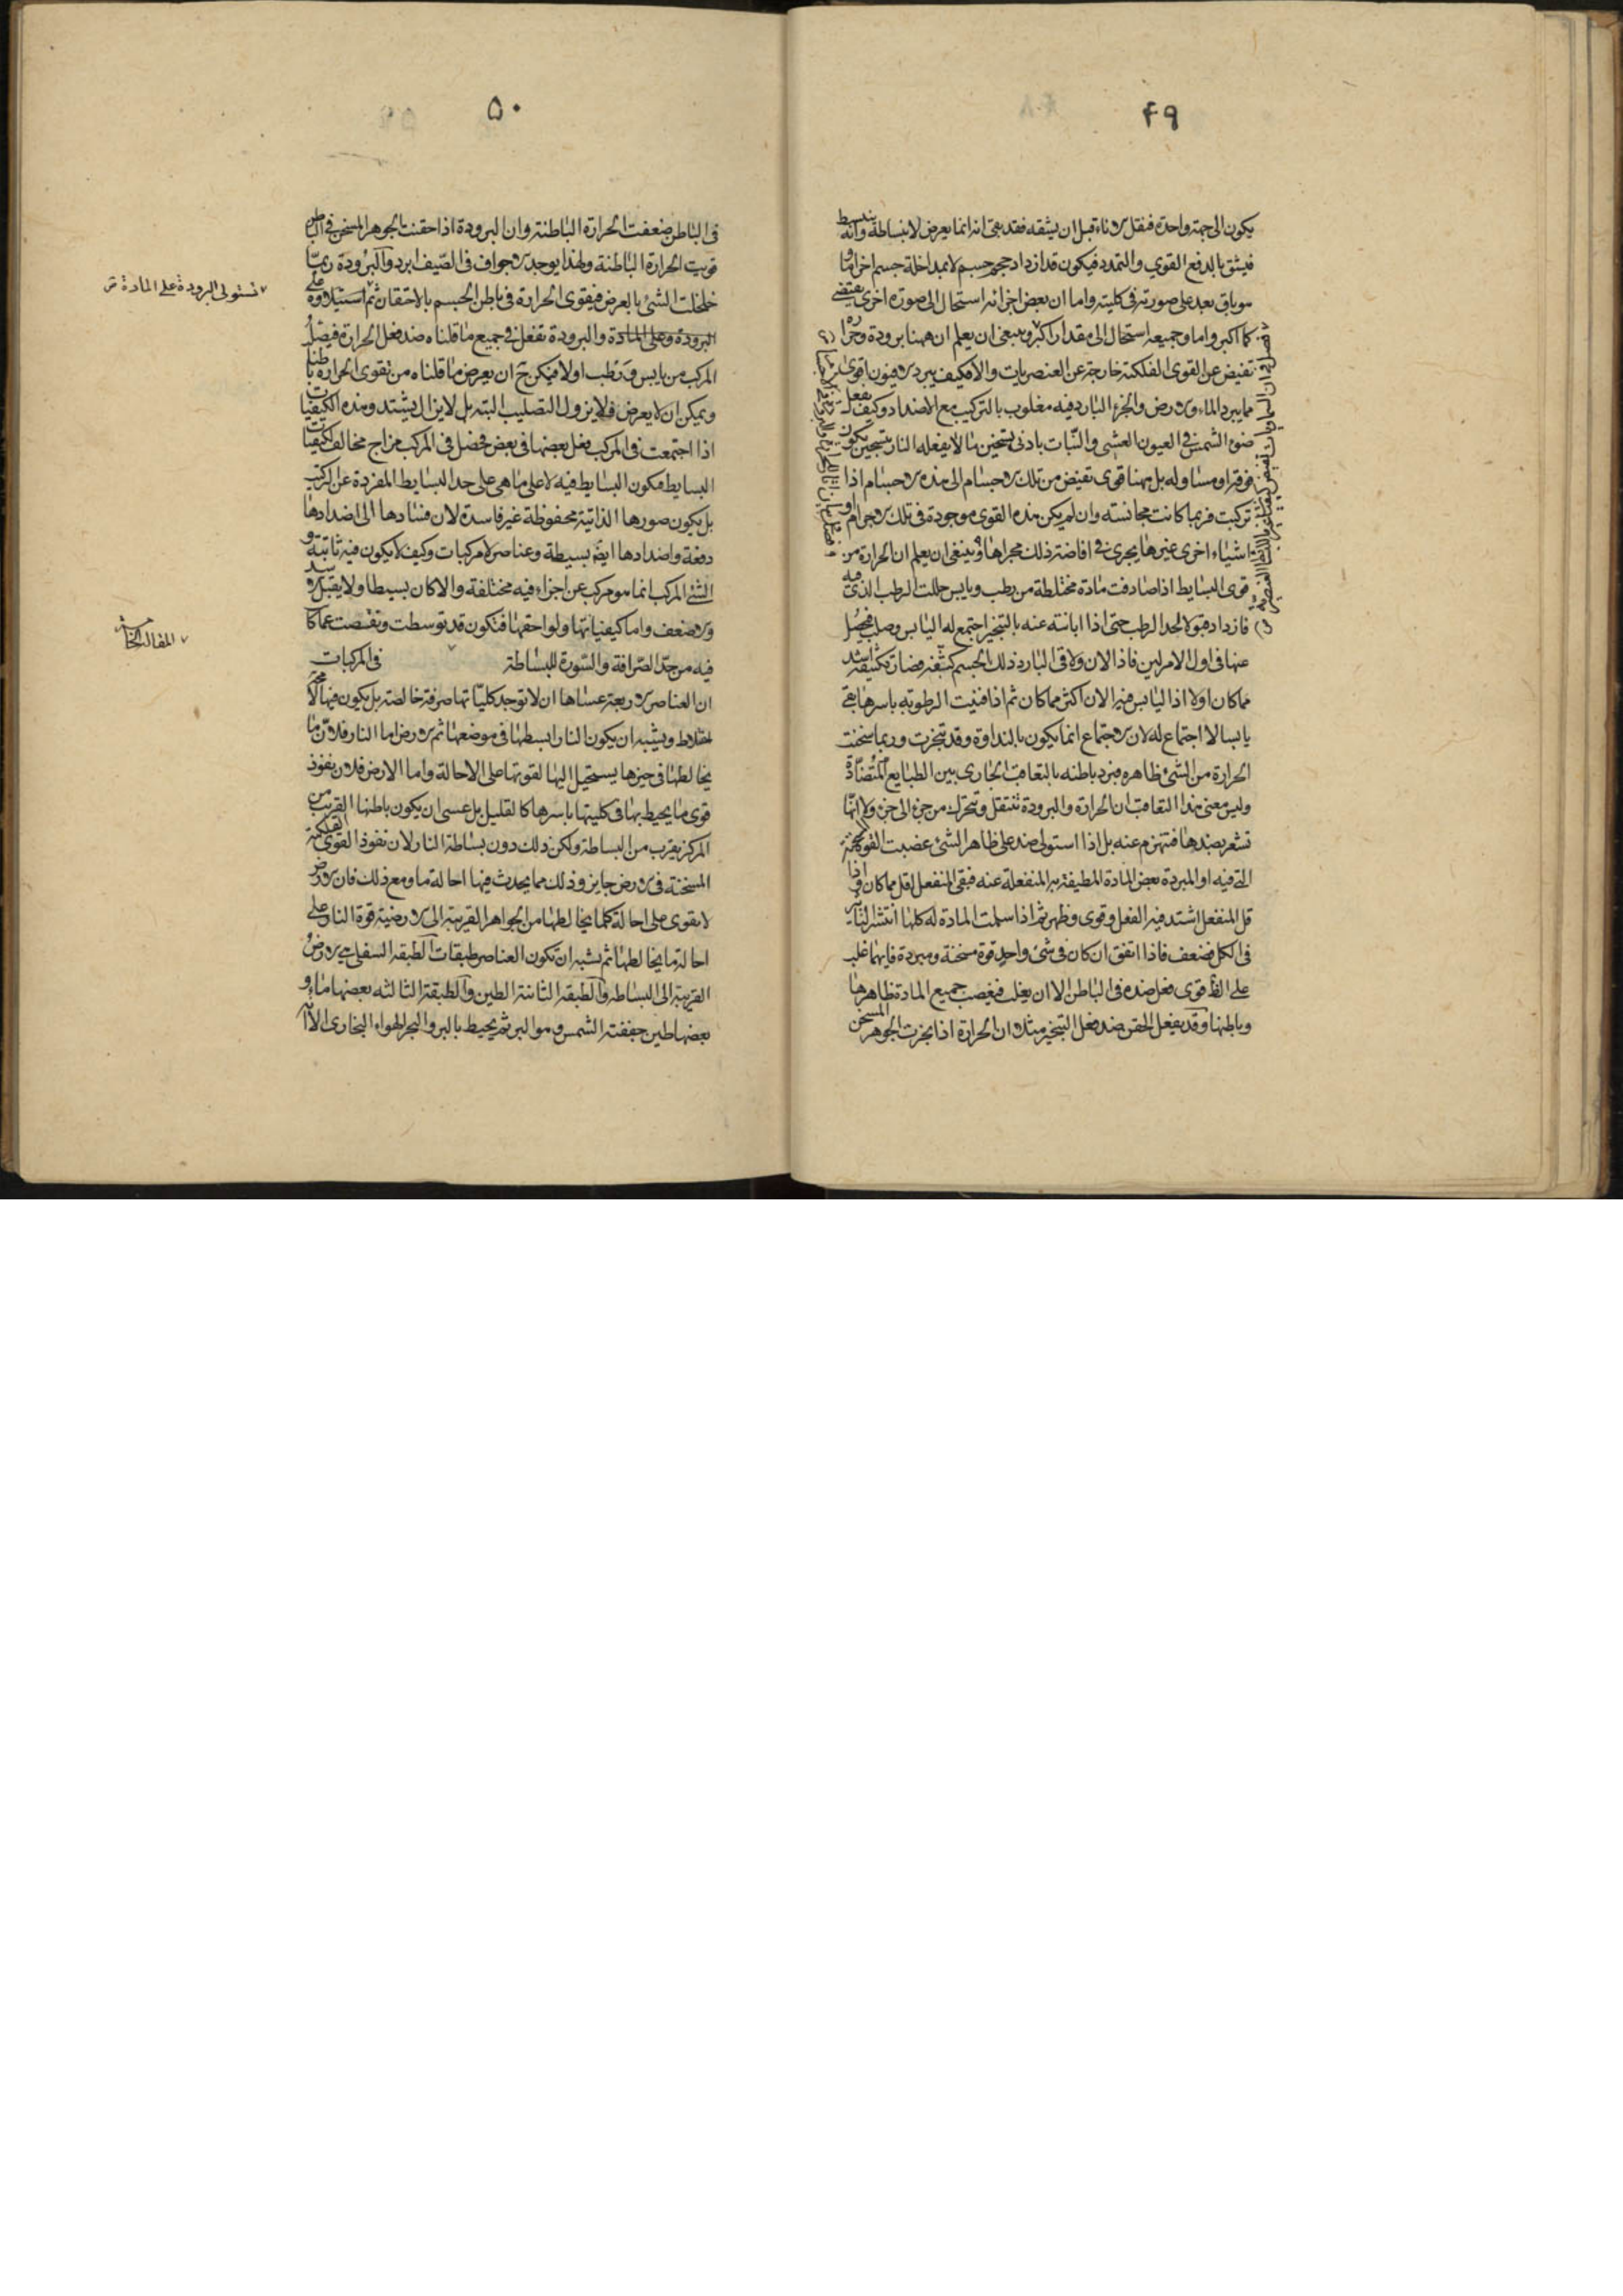 ٤٩
يكون الى جهة واحدة فنقل الاناء قبل ان يشقه فقد بقى انه انما يعرض لانبساطة وانه ينبسط
فيشق بالدفع القوى والتمدد فيكون قد ازداد حجم جسم لا بمداخلة جسم اخر اما و
هو باق بعد على صورته فى كليته واما ان بعض اجزائه استحال الى صورة اخرى يقتضى
كما اكبر واما وجميعه استحال الى مقدار اكبر وينبغى ان يعلم ان ههنا برودة وحرارة
تفيض عن القوى الفلكية خارجة عن العنصريات والا فكيف يبرد الافيون اقوى
مما يبرد الماء والارض والجزء البارد فيه مغلوب بالتركيب مع الاضداد وكيف يفعل
ضوء الشمس فى العيون العشى والنبات بادنى تسخين ما لا يفعله النار بتسخين يكون
فوقه او مساو له بل ههنا قوى تفيض من تلك الاجسام الى هذه الاجسام اذا
تركبت فربما كانت مجانسته وان لم يكن هذه القوى موجودة فى تلك الاجرام او
اشياء اخرى غيرها يجرى فى افاضة ذلك مجراها وينبغى ان يعلم ان الحرارة من
قوى البسايط اذا صادفت مادة مختلطة من رطب ويابس حللت الرطب الذى فيه
فازداد قبولا لحد الرطب حتى اذا ابانته عنه بالتبخير اجتمع له اليابس وصلب فيحصل
عنها فى اول الامر لين فاذا الان ولاقى البارد ذلك الجسم كثفه فصار تكثيفه اشد
مما كان اولا اذ اليابس فيه الان اكثر مما كان ثم اذا فنيت الرطوبة باسرها بقى
يابسا لا اجتماع له لان الاجتماع انما يكون بالنداوة وقد تبخرت وربما سخنت
الحرارة من الشئ ظاهره فبرد باطنه بالتعاقب الجارى بين الطبايع المتضادة
وليس معنى هذا التعاقب ان الحرارة والبرودة تنتقل وتتحرك من جزء الى جزء ولا انها
تشعر بضدها فتنهزم عنه بل اذا استولى ضد على ظاهر الشئ غصبت القوة المسخنة
التى فيه او المبردة بعض المادة المطيفة به المنفعلة عنه فبقى المنفعل اقل مما كان واذا
قل المنفعل اشتد فيه الفعل وقوى وظهر ثم اذا سلمت المادة له كلها انتشر التاثير
فى الكل فضعف فاذا اتفق ان كان فى شئ واحد قوة مسخنة ومبردة فايهما غلب
على الظ قوى فعل ضده فى الباطن الا ان يغلب فيغصب جميع المادة ظاهرها
وباطنها وقد يفعل الحقن ضد فعل التبخير مثلا ان الحرارة اذا بخرت الجوهر المسخن
٥٠
فى الباطن ضعفت الحرارة الباطنة وان البرودة اذا حقنت الجوهر المسخن فى الباطن
قويت الحرارة الباطنة ولهذا يوجد الاجواف فى الصيف ابرد والبرودة ربما
خلخلت الشئ بالعرض فيقوى الحرارة فى باطن الجسم بالاحتقان ثم استيلاؤه على
البرودة وعلى المادة والبرودة تفعل فى جميع ما قلناه ضد فعل الحرارة فيصلب
المركب من يابس ورطب اولا فيمكن ح ان يعرض ما قلناه من تقوى الحرارة باطنا
ويمكن ان لا يعرض فلا يزول التصليب البتة بل لا يزال يشتد وهذه الكيفيات
اذا اجتمعت فى المركب فعل بعضها فى بعض فحصل فى المركب مزاج مخالف لكيفيات
البسايط فيكون البسايط فيه لا على ما هى على حد البسايط المفردة عن التركيب
بل يكون صورها الذاتية محفوظة غير فاسدة لان فسادها الى اضدادها
دفعة واضدادها ايض بسيطة وعناصر لا مركبات وكيف لا يكون فيه ثابتة و
الشئ المركب انما هو مركب عن اجزاء فيه مختلفة والا كان بسيطا ولا يقبل الاشد
والاضعف واما كيفياتها ولواحقها فتكون قد توسطت ونقصت عما كا
فيه من حد الصرافة والسورة للبساطة فى المركبات
ان العناصر الاربعة عساها ان لا توجد كلياتها صرفة خالصة بل يكون فيها لا محة
اختلاط ويشبه ان يكون النار ابسطها فى موضعها ثم الارض اما النار فلان ما
يخالطها فى حيزها يستحيل اليها لقوتها على الاحالة واما الارض فلان نفوذ
قوى ما يحيط بها فى كليتها باسرها كالقليل بل عسى ان يكون باطنها القريب من
المركز يقرب من البساطة ولكن ذلك دون بساطة النار لان نفوذ القوى الفلكية
المسخنة فى الارض جايز وذلك مما يحدث فيها احالة ما ومع ذلك فان الارض
لا يقوى على احالة كلما يخالطها من الجواهر القريبة الى الارضية قوة النار على
احالة ما يخالطها ثم يشبه ان تكون العناصر طبقات الطبقة السفلى هى الارض
القريبة الى البساطة والطبقة الثانية الطين والطبقة الثالثة بعضها ماء و
بعضها طين جففته الشمس وهو البر ثم يحيط بالبر والبحر الهواء البخارى الا ان
تستولى البرودة على المادة
المقالة الثالثة